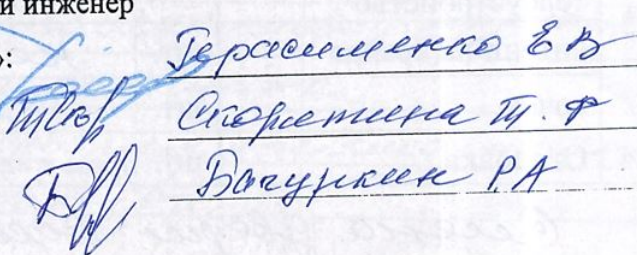 й инженер
Герасименко Е В
Скорятина Т. Ф
Бачуркин Р А